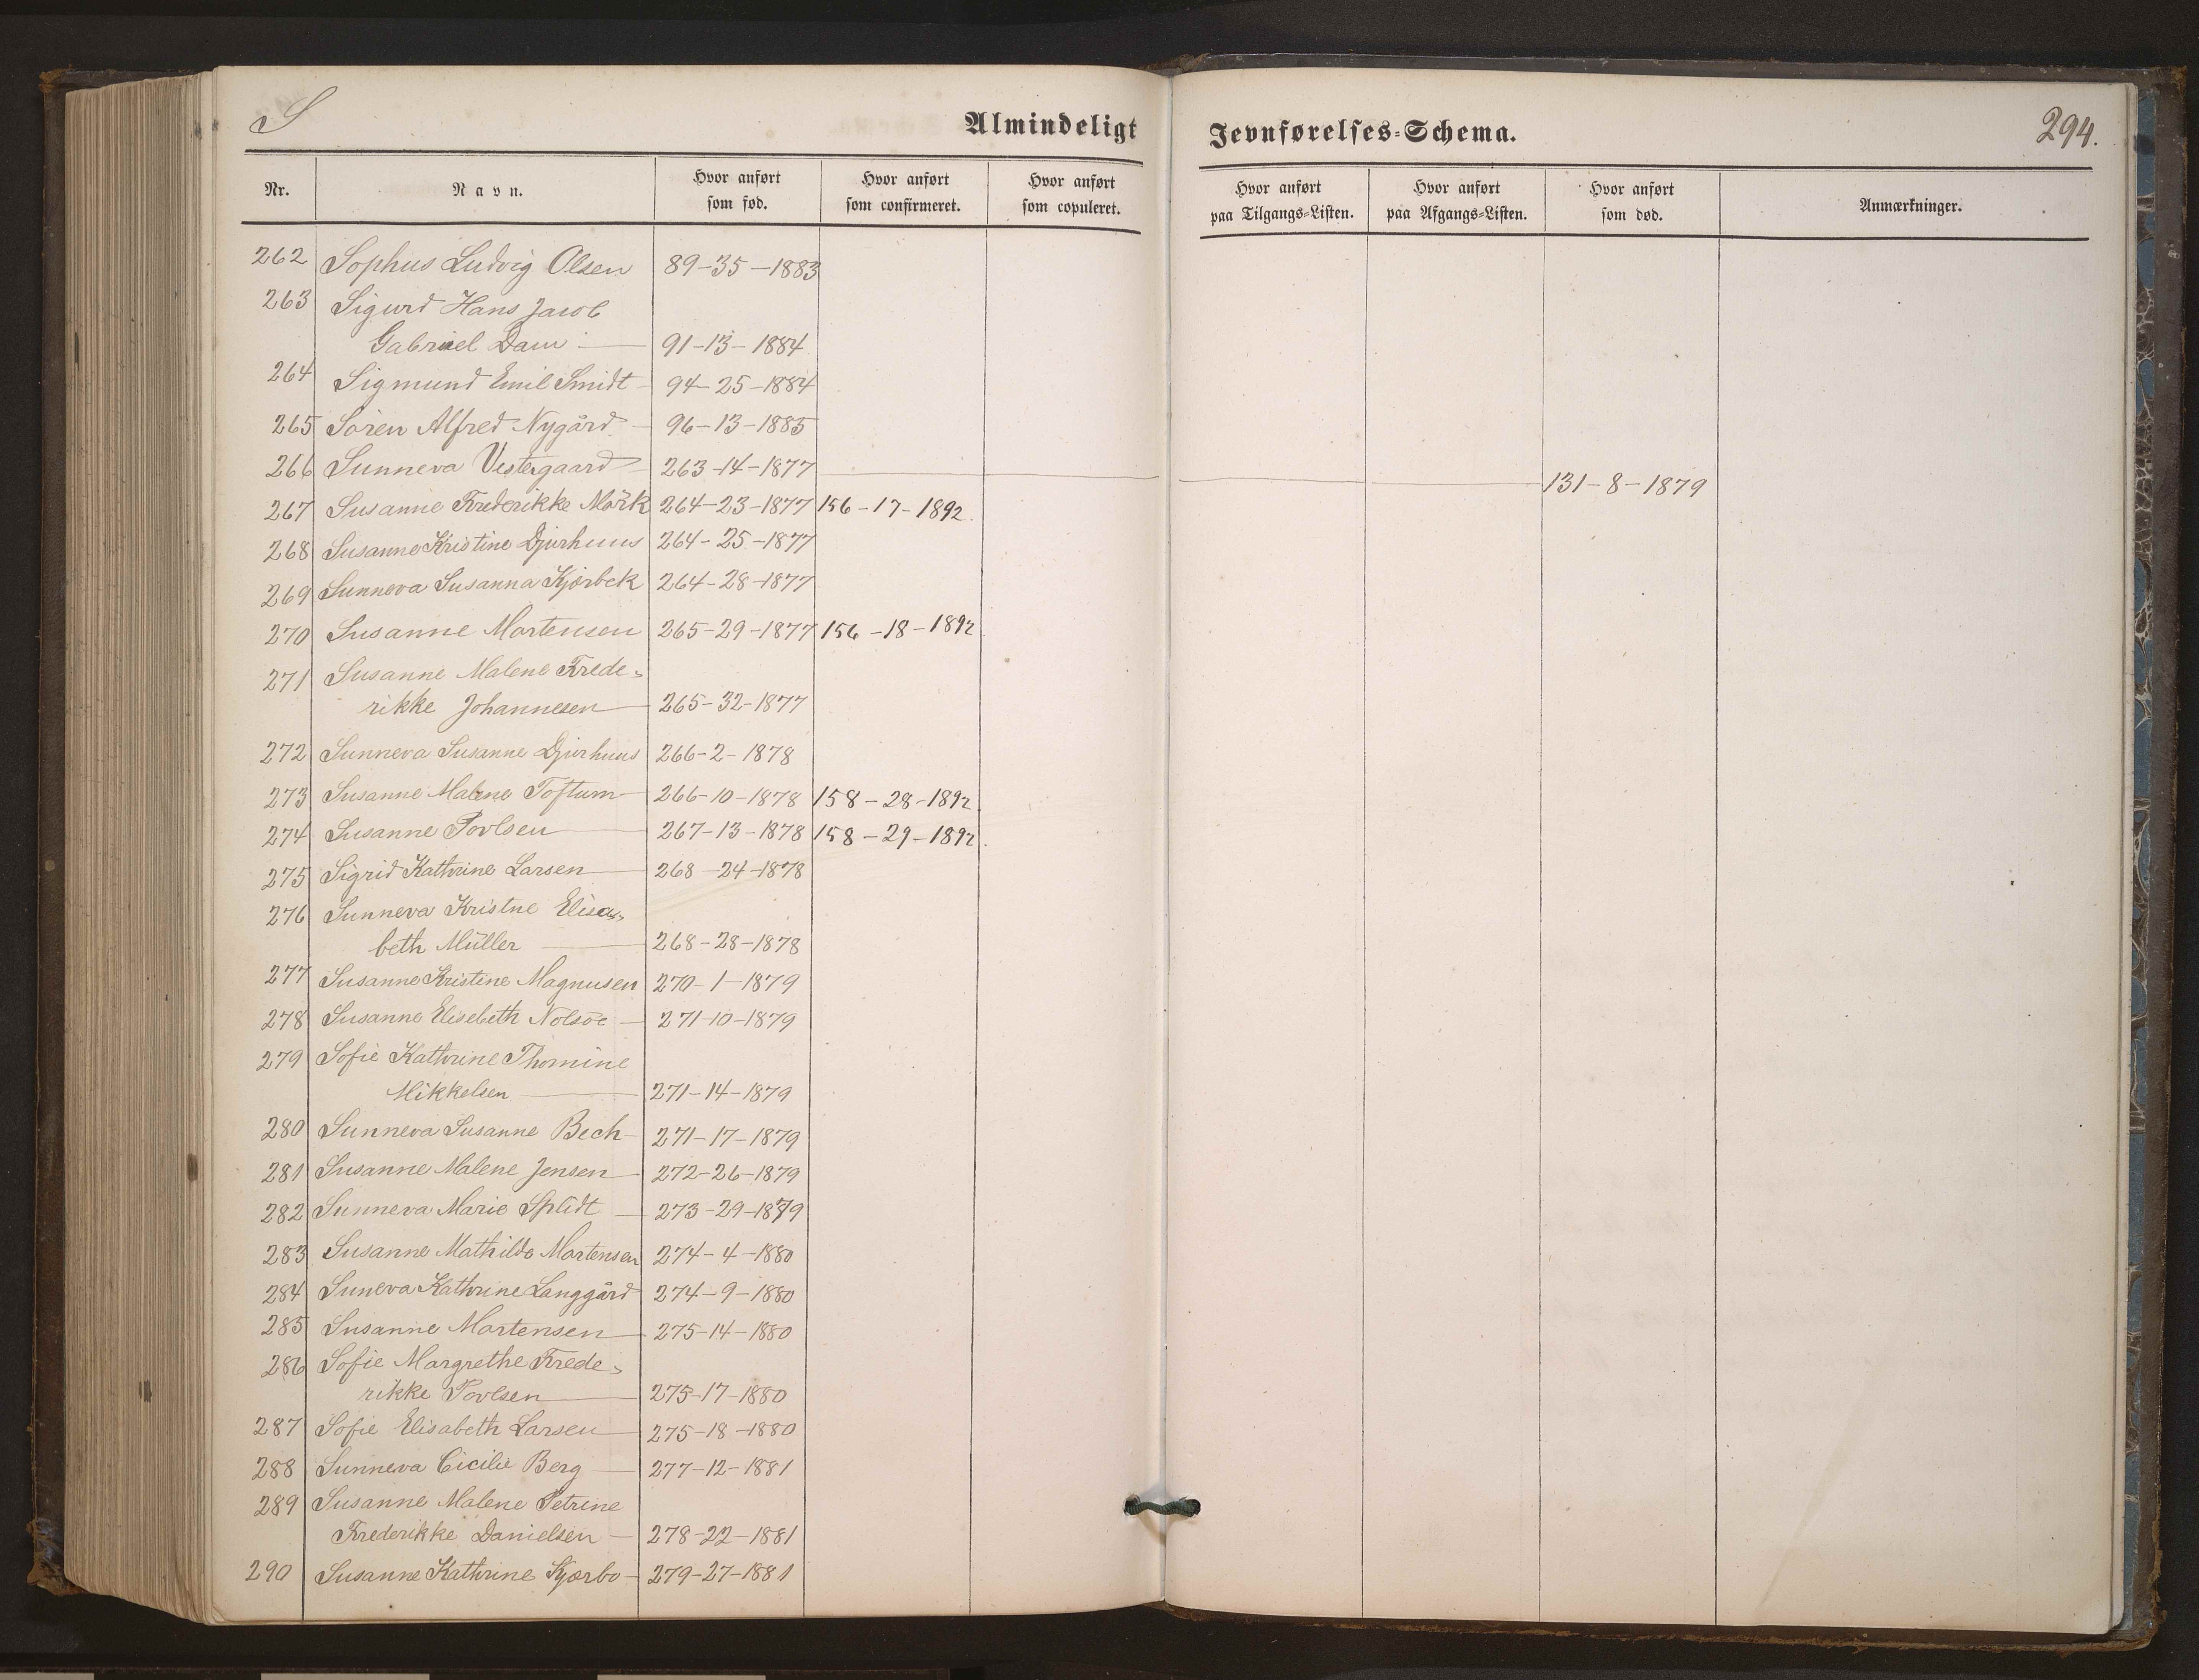 S
Almindeligt
Jevnførelses-Schema.
294.
Nr.
Navn.
Hvor anført som fød.
Hvor anført som confirmeret.
Hvor anført som copuleret.
Hvor anført paa Tilgangs-Listen.
Hvor anført paa Afgangs-Listen.
Hvor anført som død.
Anmærkninger.
262 Sophus Ludvig Olsen 89-35-1883
263 Sigurd Hans Jacob
Gabriel Dam 91-13-1884
264 Sigmund Emil Smidt 94-25-1884
265 Sören Alfred Nygård 96-13-1885
266 Sunneva Vestergaard 263-14-1877 131-8-1879
267 Susanne Frederikke Mörk 264-23-1877 156-17-1892.
268 Susanne Kristine Djurhuus 264-25-1877
269 Sunneva Susanna Kjærbek 264-28-1877
270 Susanne Mortensen 265-29-1877 156-18-1892
271 Susanne Malene Frede-
rikke Johannesen 265-32-1877
272 Sunneva Susanne Djurhuus 266-2-1878
273 Susanne Malene Toftum 266-10-1878 158-28-1892
274 Susanne Povlsen 267-13-1878 158-29-1892.
275 Sigrid Kathrine Larsen 268-24-1878
276 Sunneva Kristne Elisa-
beth Müller 268-28-1878
277 Susanne Kristine Magnusen 270-1-1879
278 Susanne Elisebeth Nolsöe 271-10-1879
279 Sofie Kathrine Thomine
Mikkelsen 271-14-1879
280 Sunneva Susanne Bech 271-17-1879
281 Susanne Malene Jensen 272-26-1879
282 Sunneva Marie Splidt 273-29-1879
283 Susanne Mathilde Mortensen 274-4-1880
284 Suneva Kathrine Langgård 274-9-1880
285 Susanne Mortensen 275-14-1880
286 Sofie Margrethe Frede-
rikke Povlsen 275-17-1880
287 Sofie Elisabeth Larsen 275-18-1880
288 Sunneva Cicilie Berg 277-12-1881
289 Susanne Malene Petrine
Frederikke Danielsen 278-22-1881
290 Susanne Kathrine Kjærbo 279-27-1881